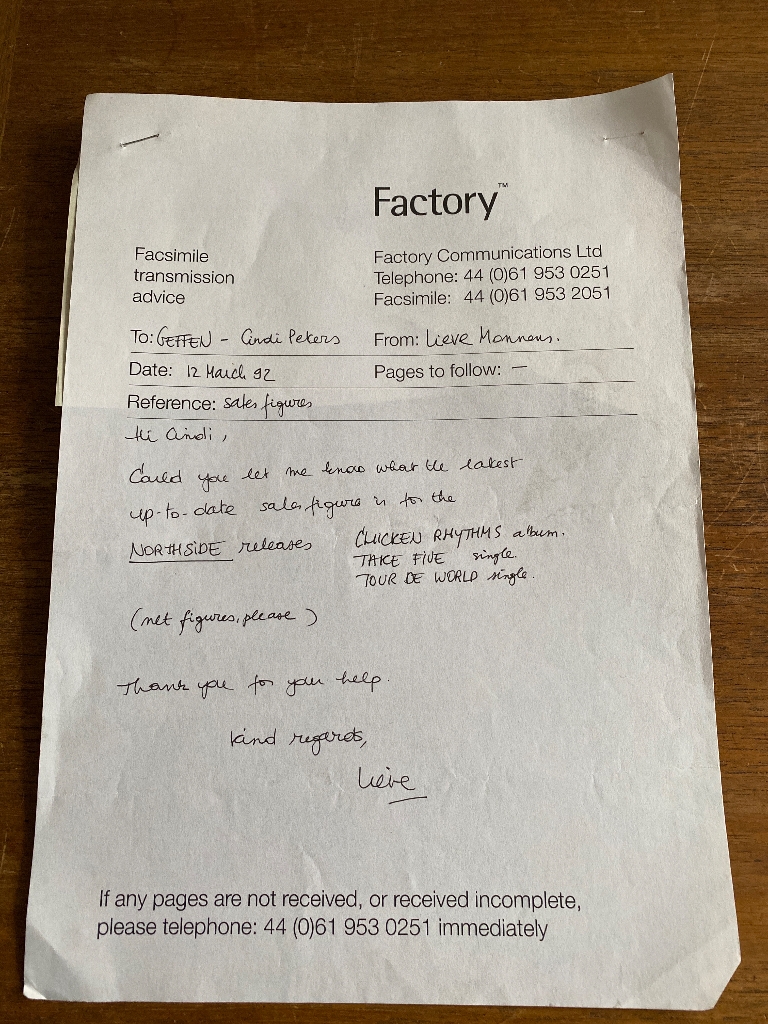 Factory™
Facsimile
transmission
advice
Factory Communications Ltd
Telephone: 44 (0)61 953 0251
Facsimile: 44 (0)61 953 2051
To: GEFFEN - Cindi Peters
From: Lieve Monnens.
Date: 12 March 92
Pages to follow: —
Reference: sales figures
Hi Cindi,
Could you let me know what the latest
up-to-date sales figure is for the
NORTHSIDE releases
CHICKEN RHYTHMS album.
TAKE FIVE single.
TOUR DE WORLD single.
(net figures, please)
Thank you for your help.
kind regards,
Lieve
If any pages are not received, or received incomplete,
please telephone: 44 (0)61 953 0251 immediately